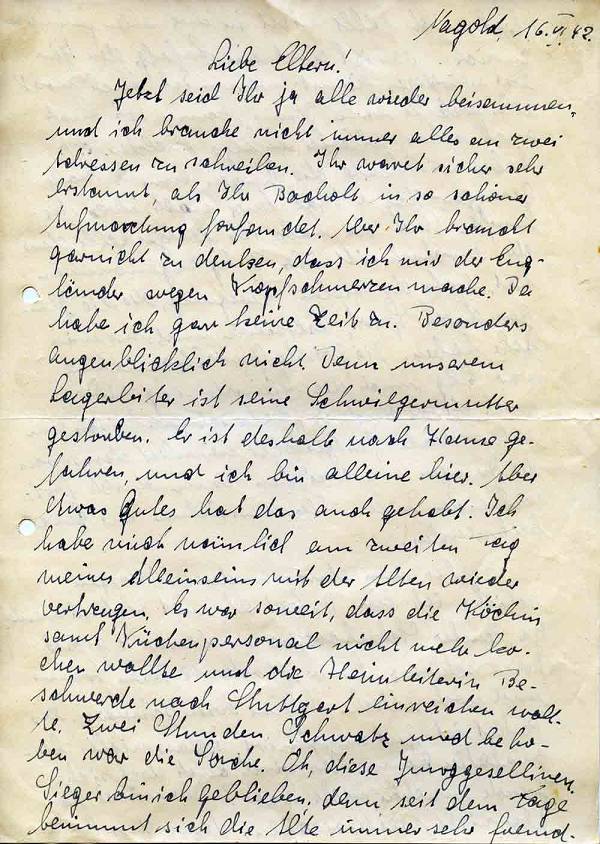 Nagold, 16. VI. 42.
Liebe Eltern!
Jetzt seid Ihr ja alle wieder beisammen,
und ich brauche nicht immer alles an zwei
Adressen zu schreiben. Ihr waret sicher sehr
erstaunt, als Ihr Bocholt in so schöner
Aufmachung vorfandet. Aber Ihr braucht
garnicht zu denken, dass ich mir der Eng-
länder wegen Kopfschmerzen mache. Da
habe ich gar keine Zeit zu. Besonders
augenblicklich nicht. Denn unserem
Lagerleiter ist seine Schwiegermutter
gestorben. Er ist deshalb nach Hause ge-
fahren, und ich bin alleine hier. Aber
etwas Gutes hat das auch gehabt. Ich
habe mich nämlich am zweiten Tag
meines Alleinseins mit der Alten wieder
vertragen. Es war soweit, dass die Köchin
samt Küchenpersonal nicht mehr ko-
chen wollte und die Heimleiterin Be-
schwerde nach Stuttgart einreichen woll-
te. Zwei Stunden Schwatz und beho-
ben war die Sache. Oh, diese Junggesellinnen.
Sieger bin ich geblieben, denn seit dem Tage
benimmt sich die Alte immer sehr fremd-